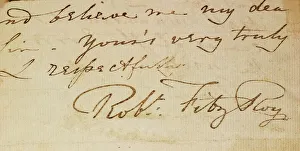 nd believe me my dea
Sir - Your's very truly
& respectfully
Robt. FitzRoy